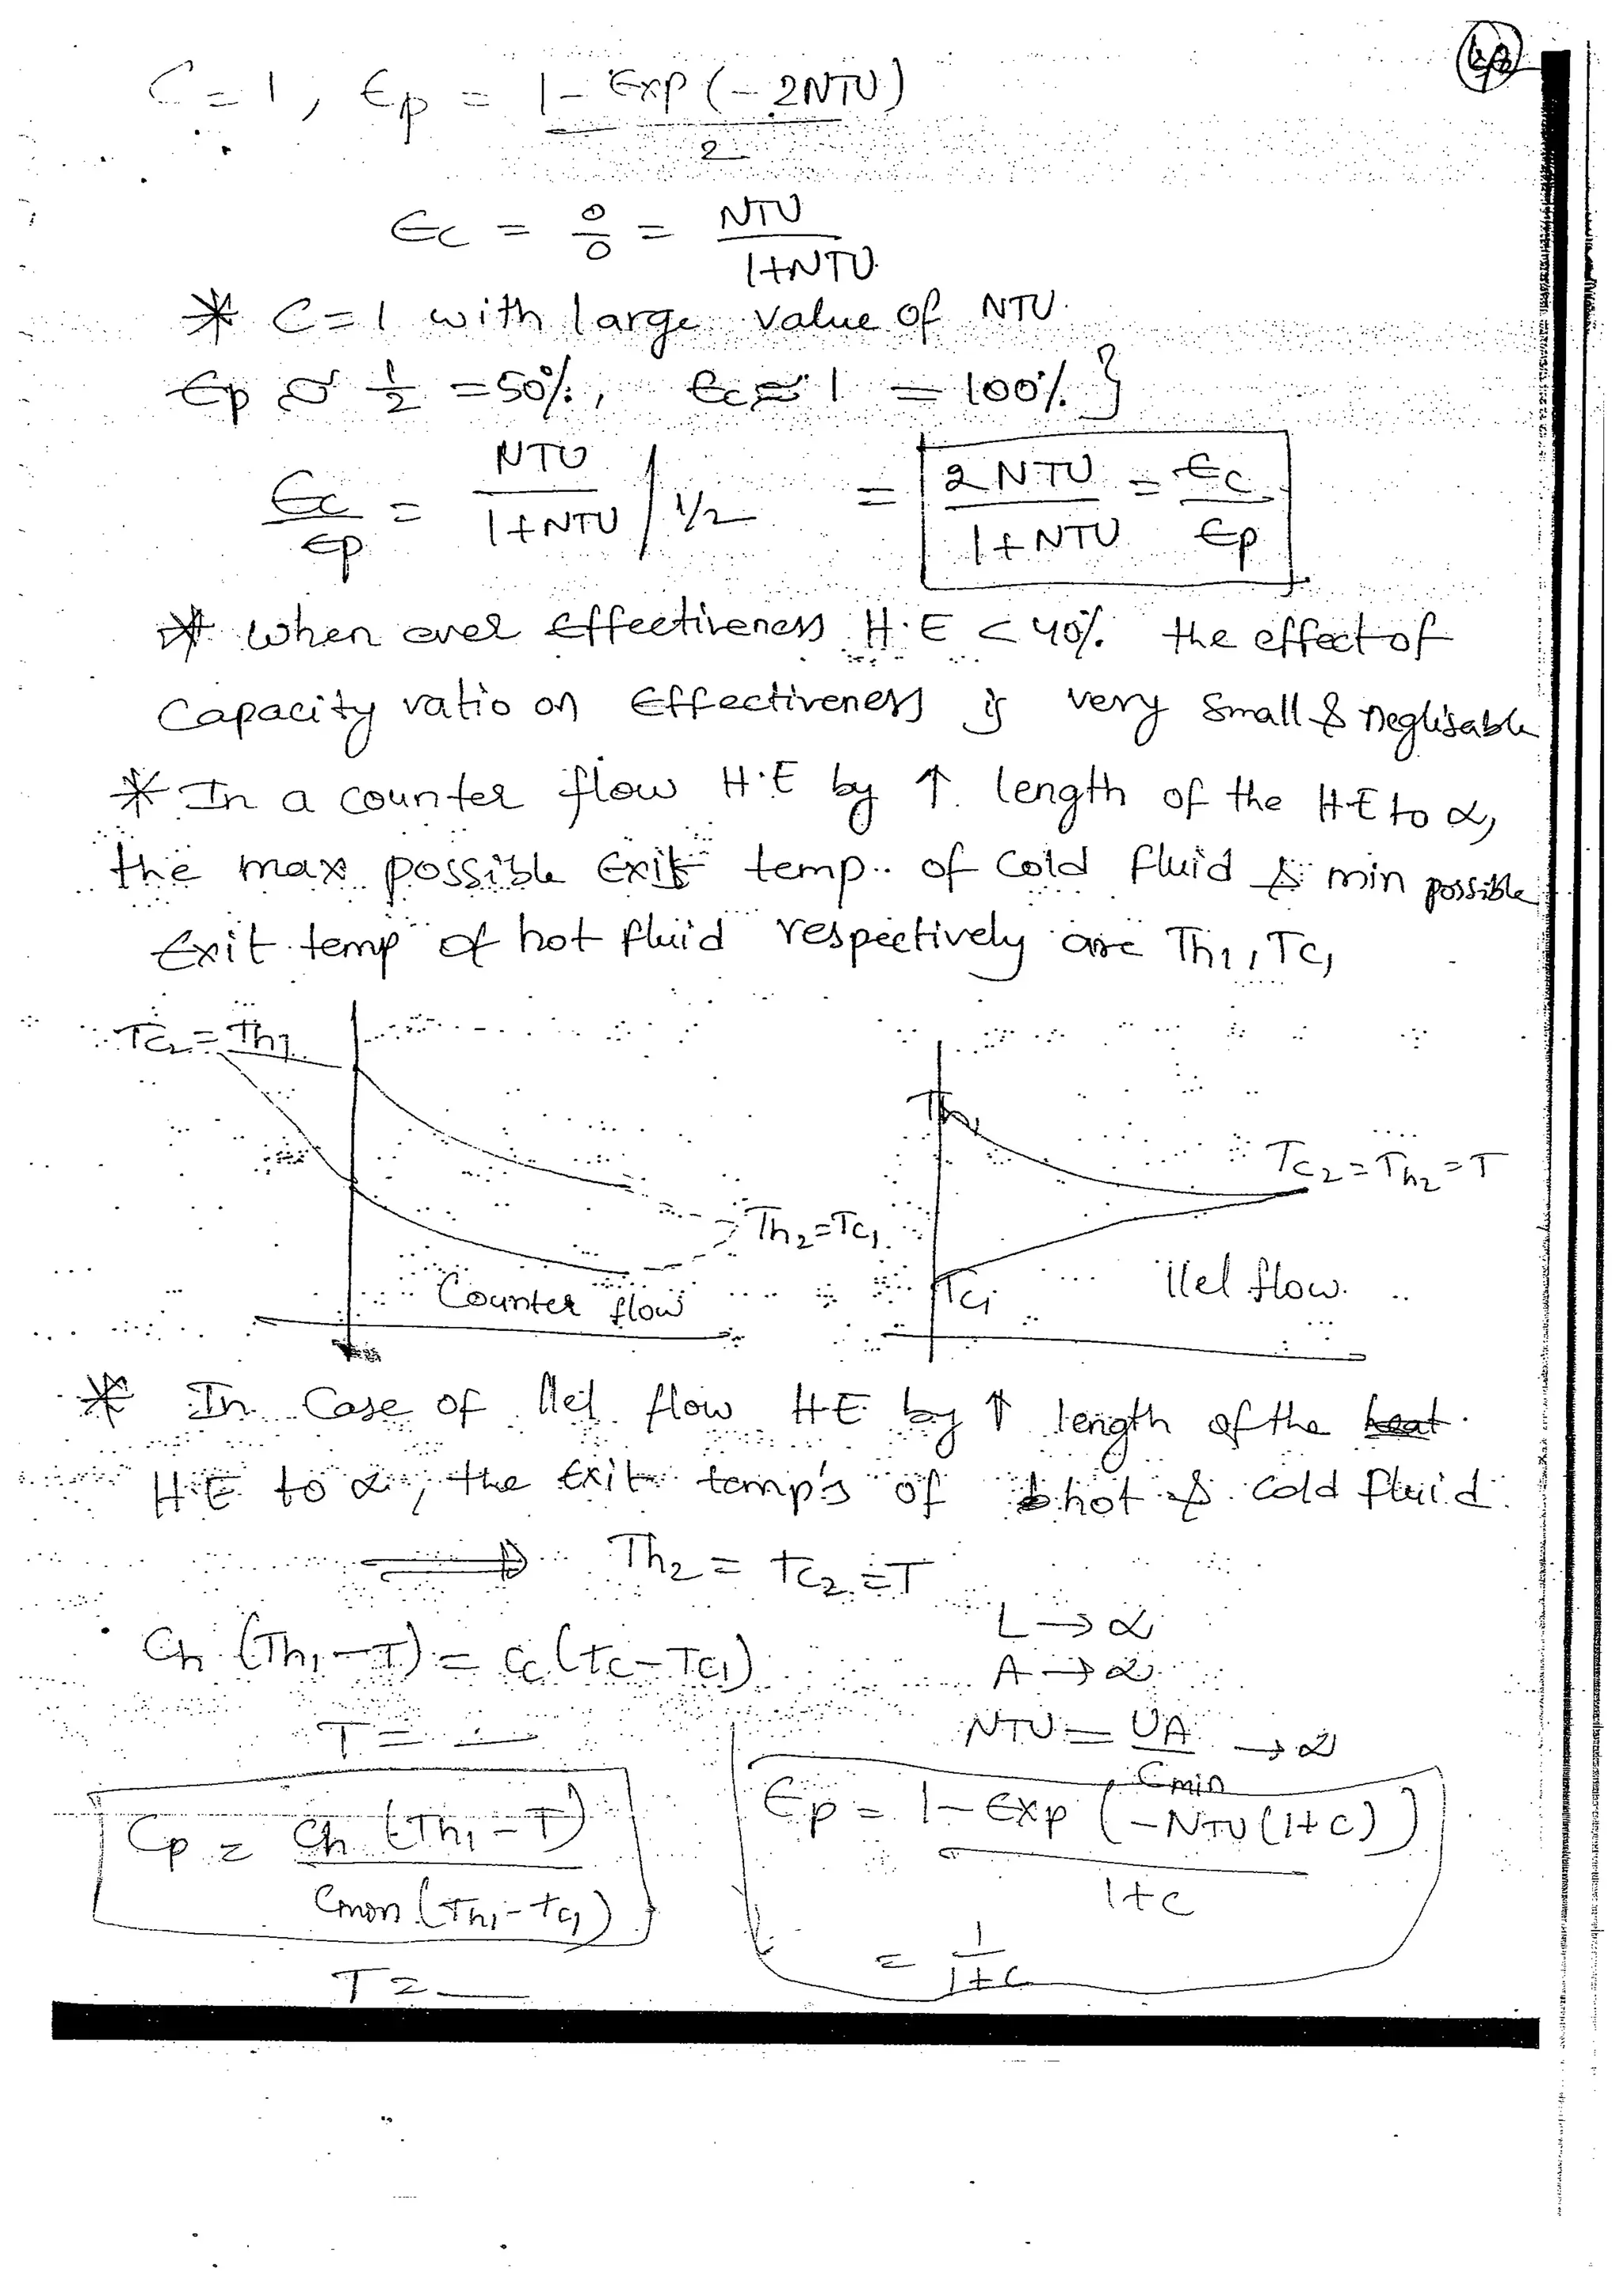 C = 1 , Ep = 1 - Exp (- 2NTU)
2
Ec = 0/0 = NTU
1+NTU
* C=1 with large value of NTU.
Ep ≈ 1/2 = 50%, Ec ≈ 1 = 100% }
Ec/Ep = NTU/1+NTU / 1/2 = 2NTU/1+NTU = Ec/Ep
* when ever Effectiveness H.E < 40% the effect of
Capacity ratio on Effectiveness is very Small & neglisable
* In a counter flow H.E by ↑ length of the H.E to ∝,
the max possible Exit temp. of Cold fluid & min possible
Exit temp of hot fluid respectively are Th1, Tc1
Tc2 = Th1
Th1
Tc2 = Th2 = T
Th2 = Tc1
Counter flow
Tc1
llel flow.
* In Case of llel flow HE by ↑ length of the heat
H.E to ∝, the Exit temp's of hot & Cold fluid.
⟹ Th2 = Tc2 = T
Ch (Th1 - T) = Cc (Tc - Tc1)
L → ∝
A → ∝
T = —
NTU = UA/Cmin → ∝
Ep = Ch (Th1 - T)
Cmin (Th1 - Tc1)
T = —
Ep = 1 - Exp (-NTU (1+C))
1+C
= 1/1+C